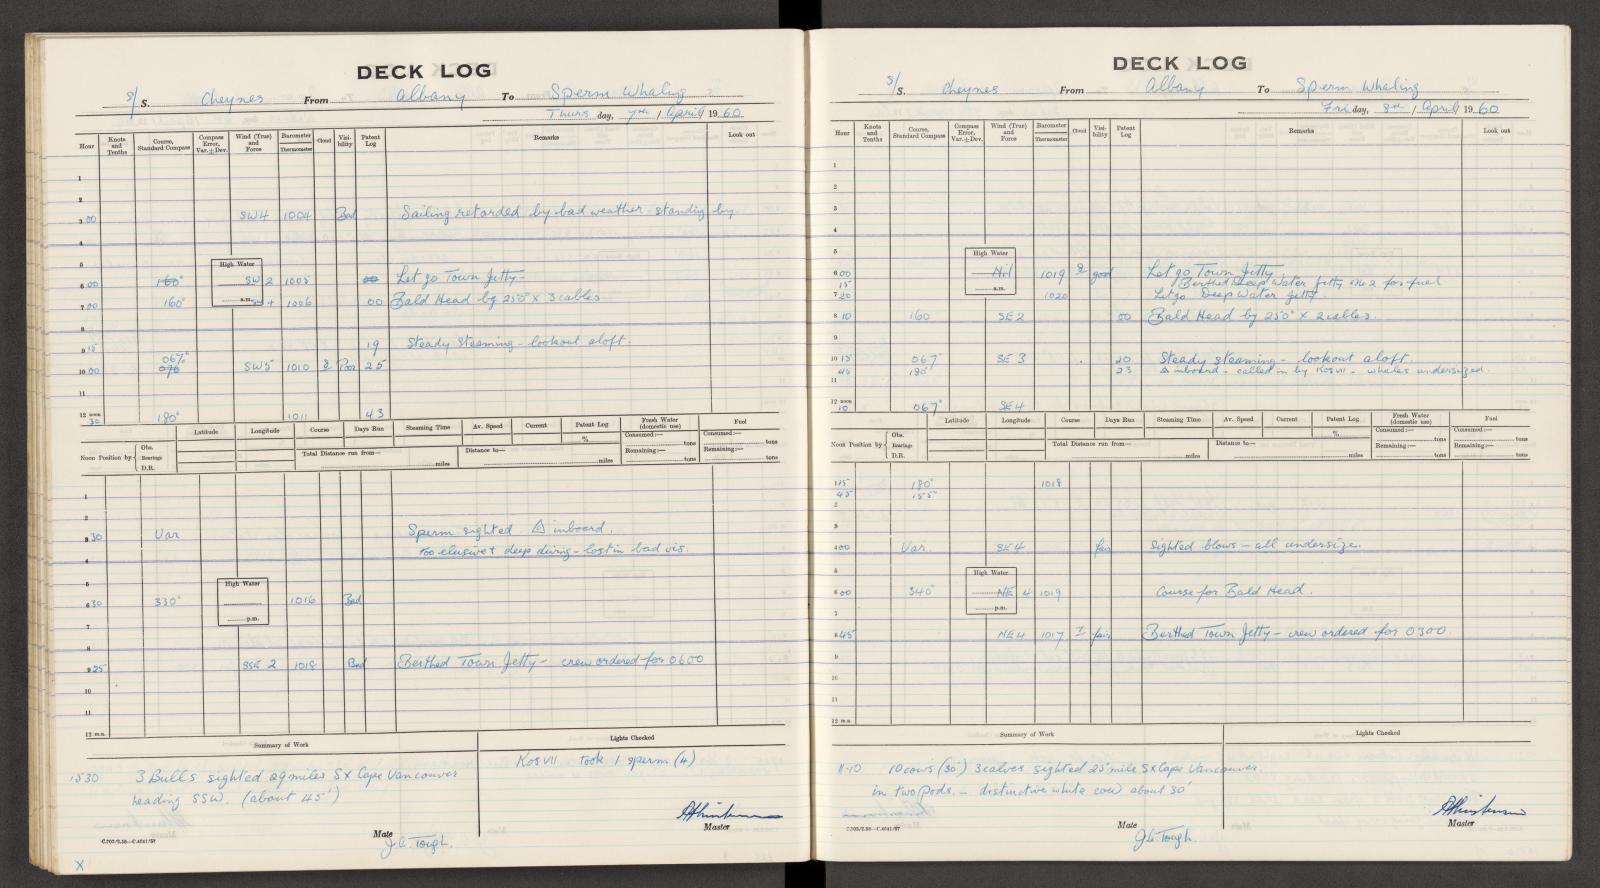 DECK LOG
S/S. Cheynes From Albany To Sperm Whaling
Thurs day, 7th / April 1960
Hour Knots and Tenths Course, Standard Compass Compass Error, Var. ± Dev. Wind (True) and Force Barometer Thermometer Cloud Visibility Patent Log Remarks Look out
1
2
3 00 SW 4 1004 Bad Sailing retarded by bad weather. standing by.
4
5
High Water
6 00 160° SW 2 1005 00 Let go Town Jetty -
a.m.
7 00 160° SW 4 1006 00 Bald Head by 250° x 3 cables
8
9 15 19 Steady Steaming - lookout aloft.
067°
10 00 076 SW 5 1010 8 Poor 25
11
12 noon 30 180° 1011 43
Latitude Longitude Course Days Run Steaming Time Av. Speed Current Patent Log % Fresh Water (domestic use) Fuel
Noon Position by Obs. Bearings D.R. Total Distance run from— miles Distance to— miles Consumed:— tons Remaining:— tons Consumed:— tons Remaining:— tons
1
2
3 30 Var Sperm sighted. inboard.
too elusive & deep diving - lost in bad vis.
4
5
High Water
6 30 330° 1016 Bad
p.m.
7
8
9 25 SSE 2 1018 Bad Berthed Town Jetty - crew ordered for 0600
10
11
12 m.n.
Summary of Work Lights Checked
1530 3 Bulls sighted 29 miles S x Cape Vancouver
heading SSW. (about 45')
Kos VII took 1 sperm (4)
Master
Mate J.C. Tough.
C.702/2.58—C.4641/57
X
DECK LOG
S/S. Cheynes From Albany To Sperm Whaling
Fri day, 8th / April 1960
Hour Knots and Tenths Course, Standard Compass Compass Error, Var. ± Dev. Wind (True) and Force Barometer Thermometer Cloud Visibility Patent Log Remarks Look out
1
2
3
4
5
High Water
6 00 Nil 1019 8 good Let go Town Jetty
15 Berthed Deep Water Jetty No 2 for fuel
a.m.
7 20 1020 Let go Deep Water Jetty.
8 10 160 SE 2 00 Bald Head by 250° x 2 cables.
9
10 15 067° SE 3 20 Steady steaming - lookout aloft.
45 180° 23 inboard - called in by Kos VII - whales undersized.
11
12 noon 10 067° SE 4
Latitude Longitude Course Days Run Steaming Time Av. Speed Current Patent Log % Fresh Water (domestic use) Fuel
Noon Position by Obs. Bearings D.R. Total Distance run from— miles Distance to— miles Consumed:— tons Remaining:— tons Consumed:— tons Remaining:— tons
1 15 180° 1018
45 155°
2
3
4 00 Var. SE 4 fair Sighted blows - all undersize.
5
High Water
6 00 340° NE 4 1019 Course for Bald Head.
p.m.
7
8 45 NE 4 1017 7 fair Berthed Town Jetty - crew ordered for 0300.
9
10
11
12 m.n.
Summary of Work Lights Checked
11-10 10 cows (30') 3 calves sighted 25 mile S x Cape Vancouver.
in two pods. - distinctive white cow about 30'
Master
Mate J.C. Tough.
C.702/2.58—C.4641/57